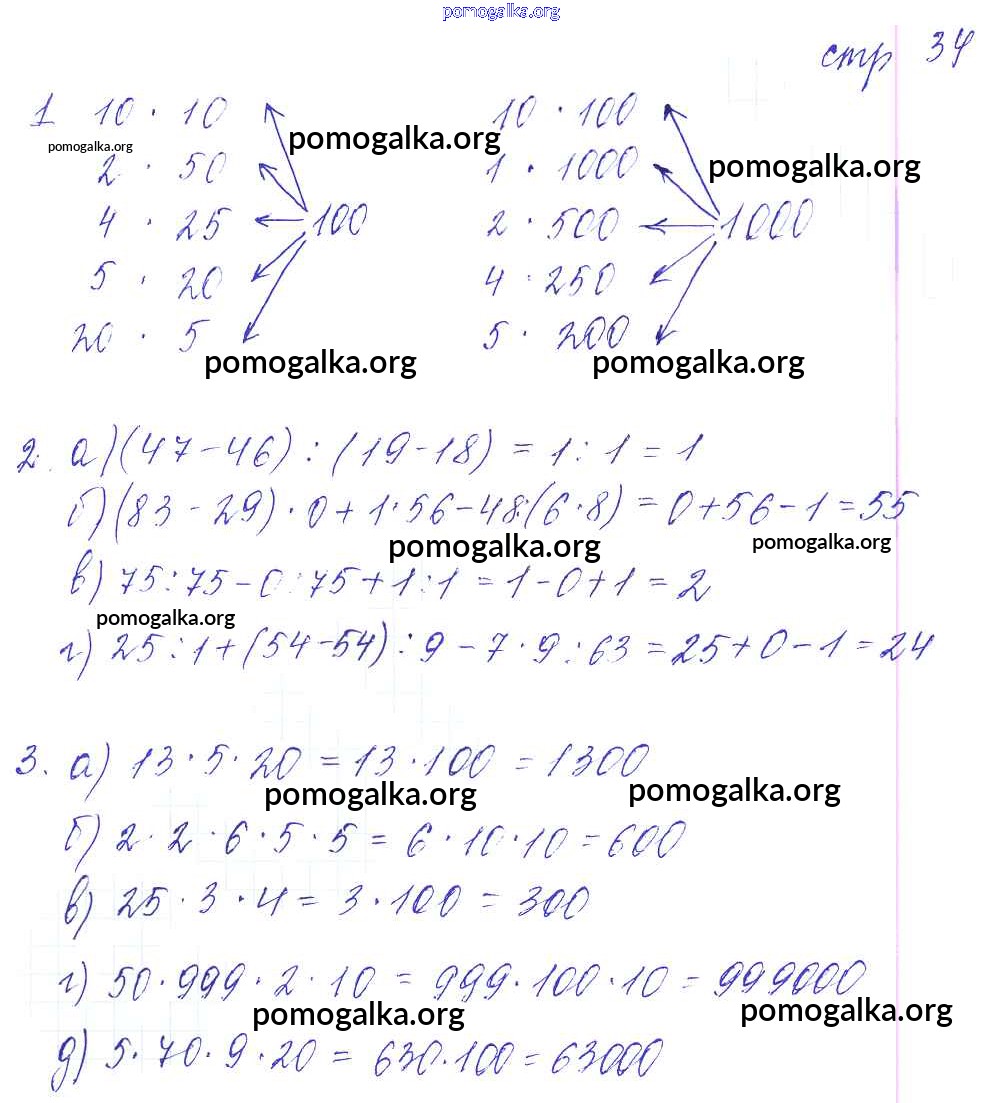 pomogalka.org
стр 34
1 10 · 10 10 · 100
pomogalka.org
pomogalka.org
2 · 50 1 · 1000
pomogalka.org
4 · 25 100 2 · 500 1000
5 · 20 4 · 250
20 · 5 5 · 200
pomogalka.org pomogalka.org
2. а) (47 - 46) : (19 - 18) = 1 : 1 = 1
б) (83 - 29) · 0 + 1 · 56 - 48 : (6 · 8) = 0 + 56 - 1 = 55
pomogalka.org pomogalka.org
в) 75 : 75 - 0 : 75 + 1 : 1 = 1 - 0 + 1 = 2
pomogalka.org
г) 25 : 1 + (54 - 54) : 9 - 7 · 9 : 63 = 25 + 0 - 1 = 24
3. а) 13 · 5 · 20 = 13 · 100 = 1300
pomogalka.org pomogalka.org
б) 2 · 2 · 6 · 5 · 5 = 6 · 10 · 10 = 600
в) 25 · 3 · 4 = 3 · 100 = 300
г) 50 · 999 · 2 · 10 = 999 · 100 · 10 = 999000
pomogalka.org pomogalka.org
д) 5 · 70 · 9 · 20 = 630 · 100 = 63000